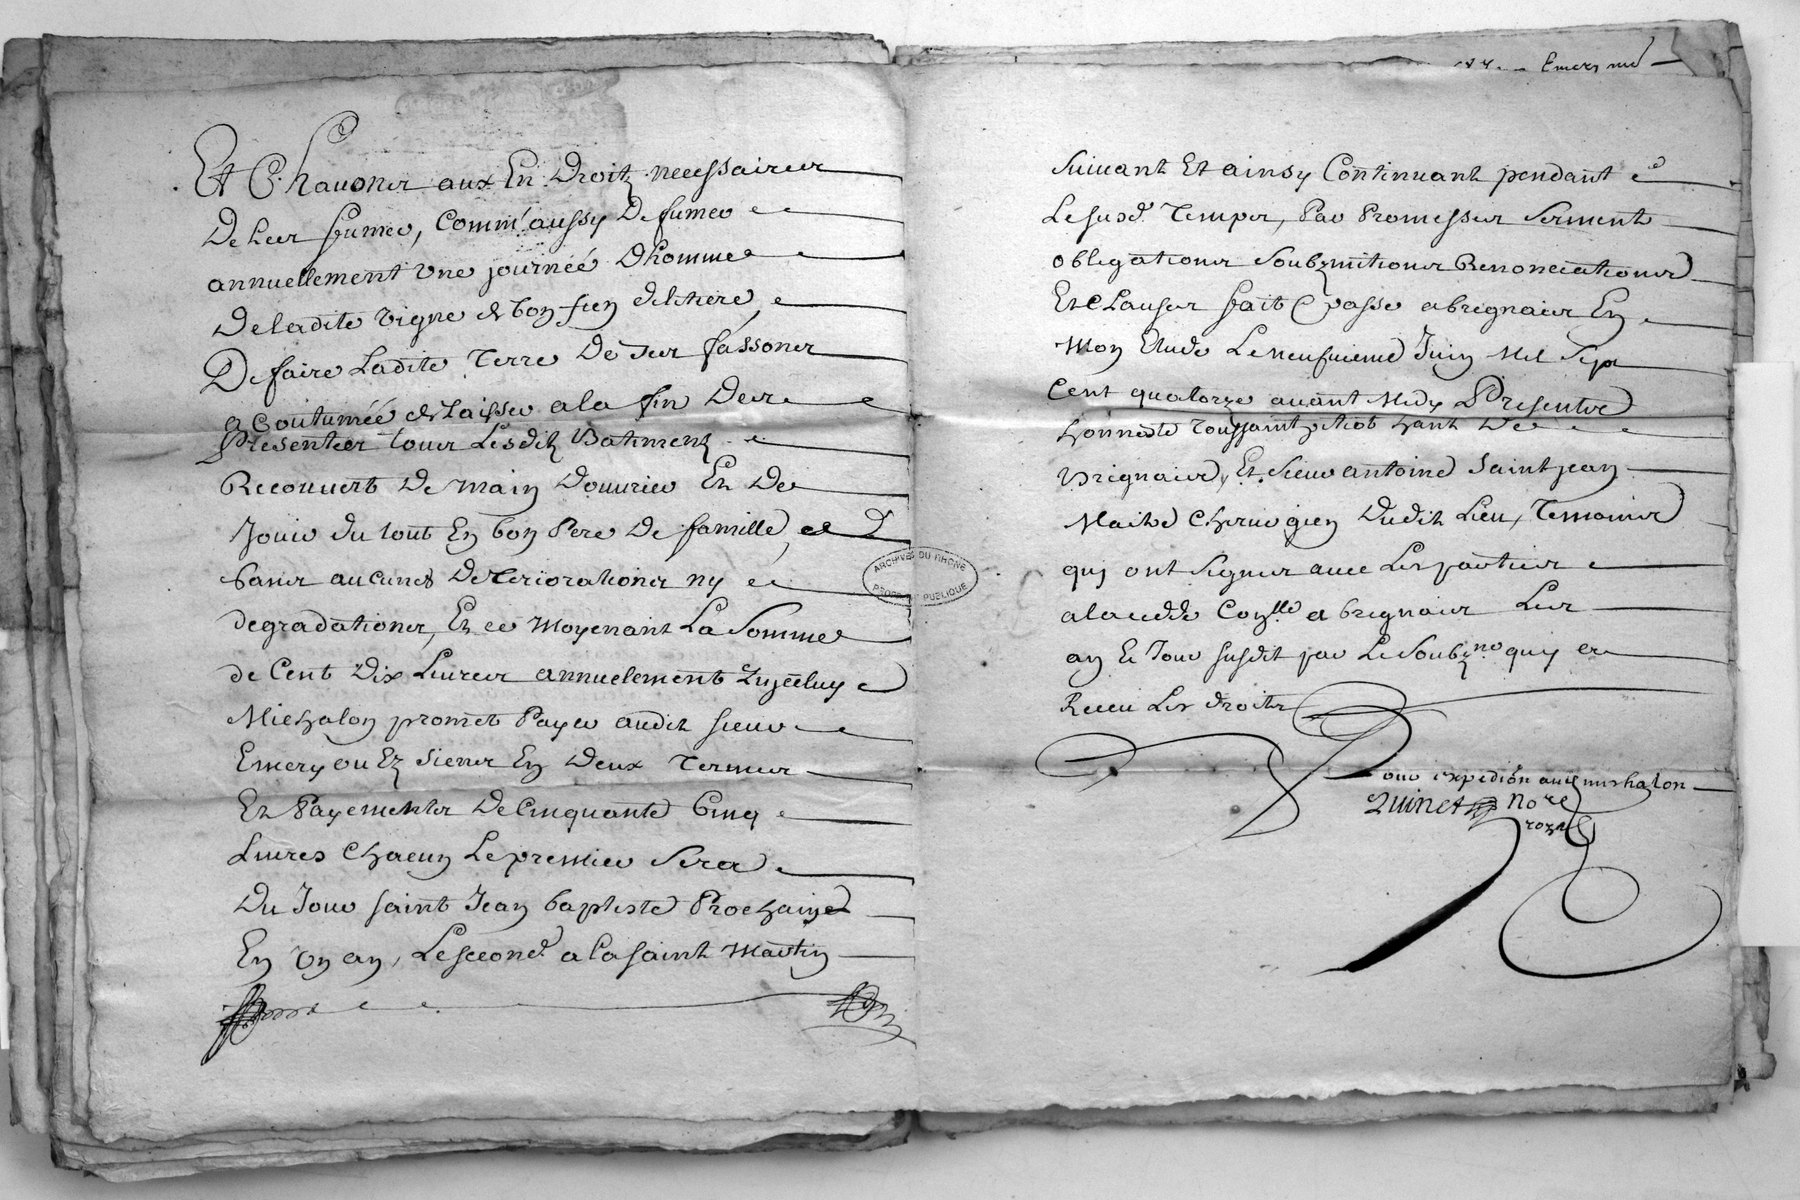 Et Chavoner aux En droitz necessaires
De les fumer, comm'aussy De fumer
annuellement une journée Dhommes
De ladite vigne de bon fien delitiere,
De faire Ladite Terre De ses fassons
acoutumée de laisser a la fin des
presentes tous Lesditz Batimentz
Recouvert De main Douvrier Et De
Jouir du tout En bon Pere De famille,
sans aucunes Deteriorations ny
degradations, Et ce Moyenant La Somme
de Cent Dix Livres annuelement
Michalon promet Payer audit sieur
Emery ou Ez siens En Deux Termes
Et Payements De Cinquante Cinq
Livres Chacun Le premier Sera
Du Jour saint Jean baptiste Prochaine
En Un an, Le second a la saint Martin
Emery
suivant Et ainsy Continuant pendant
Le susd. Temps, Par Promesses Serment
obligations Soubzmitions Renonciations
Et Clauses fait & passé a brignais En
Mon Etude Le neufvieme Juin Mil Sept
Cent quatorze avant Midy Presents
honneste Toussaint hant De
Brignais, Et Sieur antoine Saint jean
Maitre Chirurgien Dudit Lieu, Temoins
quy ont signes avec Les parties
a la cedde Conlle a brignais Les
an & Jour susdit par Le Soubzne quy en
Receu Les droits
Pour expedion audt mishalon
Quinet Nore
ARCHIVES DU RHONE
PROPRIETE PUBLIQUE